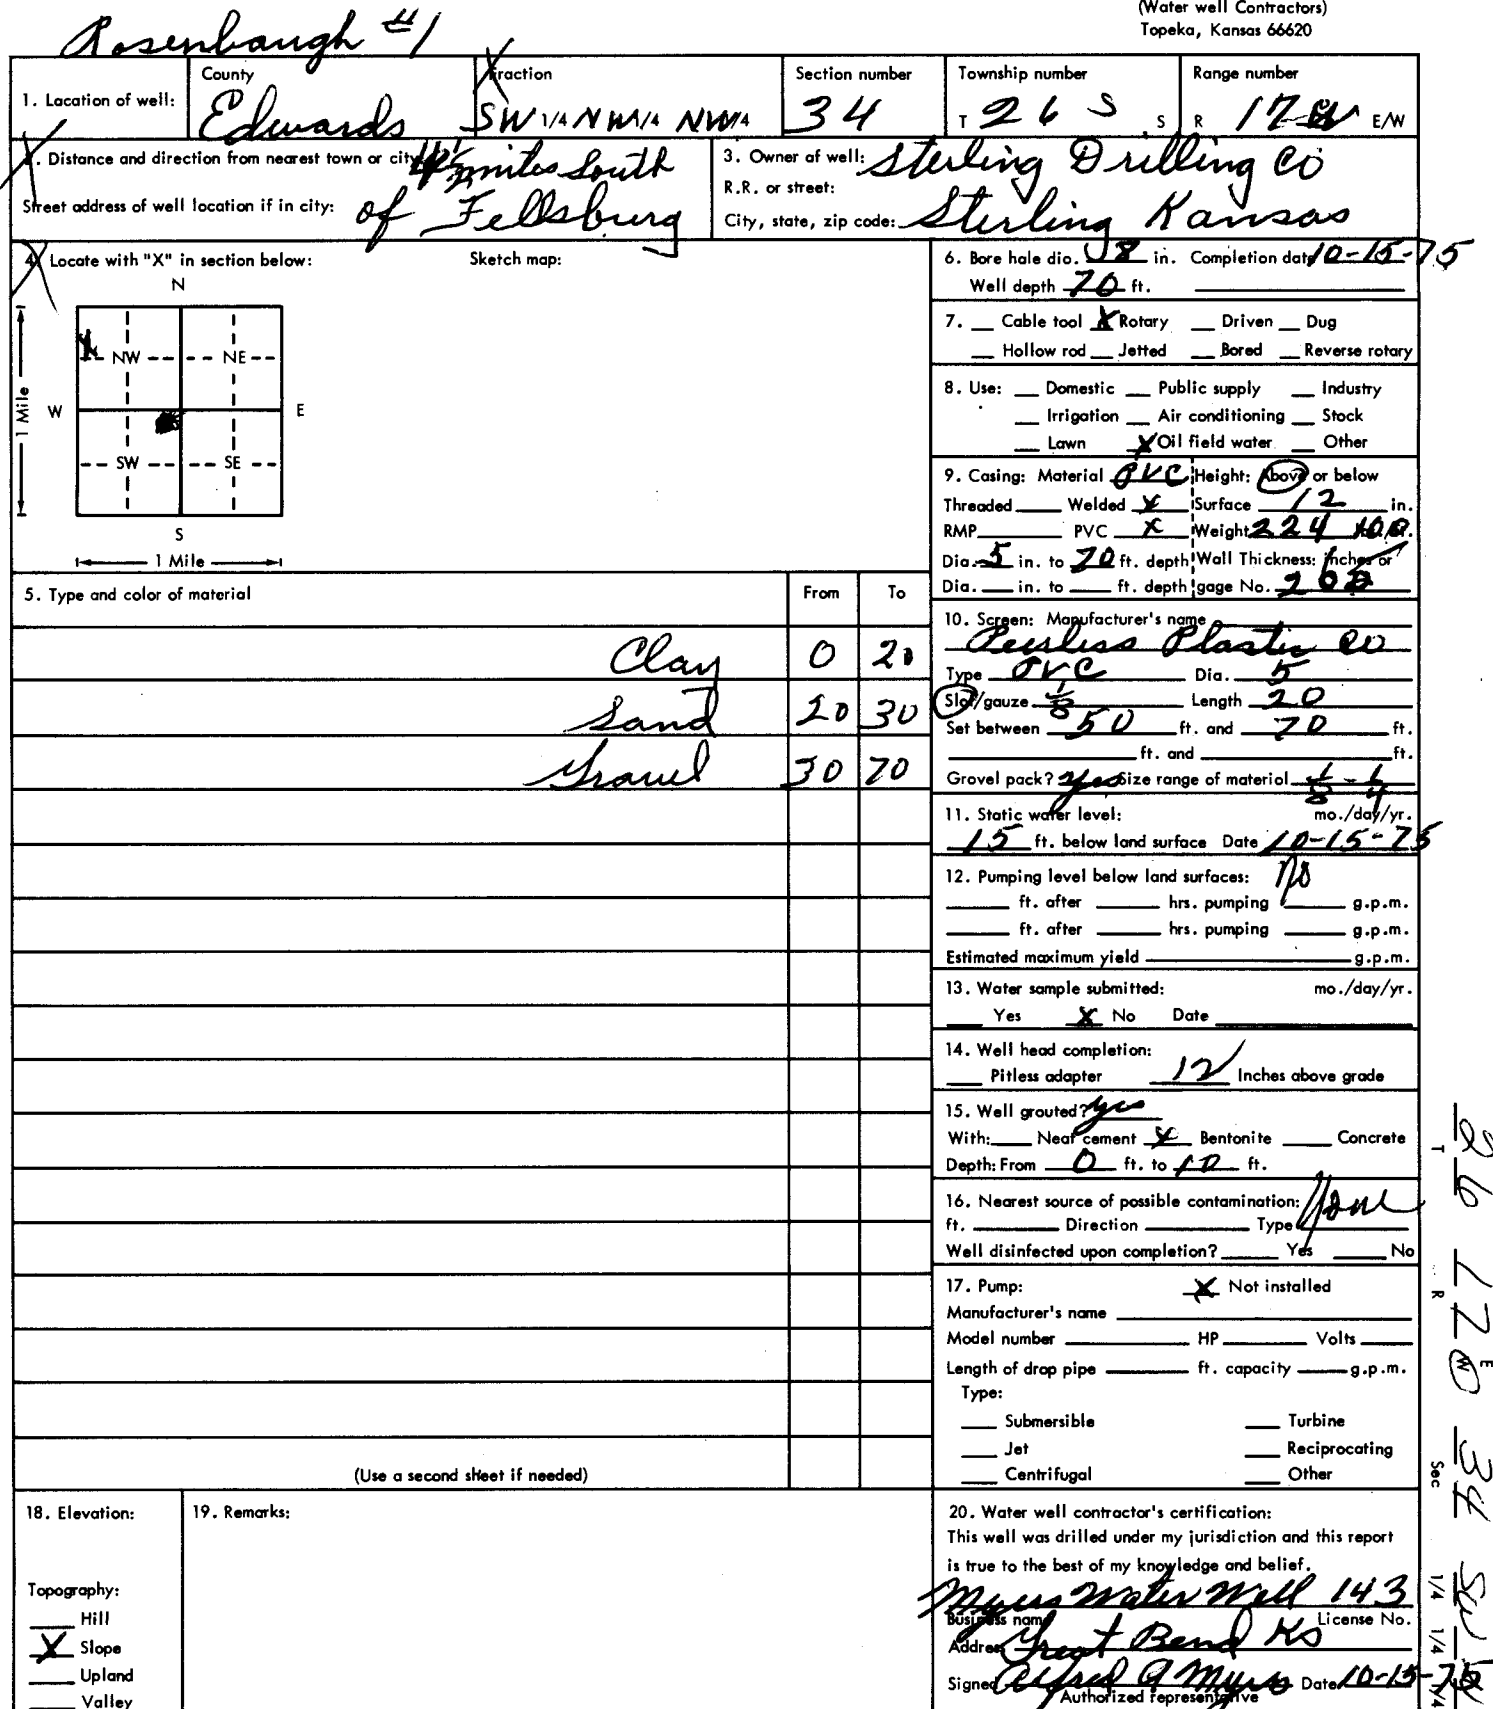 (Water well Contractors)
Topeka, Kansas 66620
Rosenbaugh #1
1. Location of well: County Edwards Fraction SW 1/4 NW 1/4 NW 1/4 Section number 34 Township number T 26 S S Range number R 17 W E/W
2. Distance and direction from nearest town or city: 4 1/2 miles South
Street address of well location if in city: of Fellsburg
3. Owner of well: Sterling Drilling Co
R.R. or street:
City, state, zip code: Sterling Kansas
4. Locate with "X" in section below: Sketch map:
N
NW NE
W E
SW SE
S
1 Mile
1 Mile
5. Type and color of material From To
Clay 0 20
Sand 20 30
Gravel 30 70
(Use a second sheet if needed)
6. Bore hole dia. 8 in. Completion date 10-15-75
Well depth 70 ft.
7. Cable tool X Rotary Driven Dug
Hollow rod Jetted Bored Reverse rotary
8. Use: Domestic Public supply Industry
Irrigation Air conditioning Stock
Lawn X Oil field water Other
9. Casing: Material PVC Height: Above or below
Threaded Welded X Surface 12 in.
RMP PVC X Weight 224
Dia. 5 in. to 70 ft. depth Wall Thickness: inches or
Dia. in. to ft. depth gage No.
10. Screen: Manufacturer's name
Peerless Plastic Co
Type PVC Dia. 5
Slot/gauze 1/8 Length 20
Set between 50 ft. and 70 ft.
ft. and ft.
Gravel pack? yes Size range of material 1/8 - 1/4
11. Static water level: mo./day/yr.
15 ft. below land surface Date 10-15-75
12. Pumping level below land surfaces: no
ft. after hrs. pumping g.p.m.
ft. after hrs. pumping g.p.m.
Estimated maximum yield g.p.m.
13. Water sample submitted: mo./day/yr.
Yes X No Date
14. Well head completion:
Pitless adapter 12 Inches above grade
15. Well grouted? yes
With: Neat cement X Bentonite Concrete
Depth: From 0 ft. to 10 ft.
16. Nearest source of possible contamination: None
ft. Direction Type
Well disinfected upon completion? Yes No
17. Pump: X Not installed
Manufacturer's name
Model number HP Volts
Length of drop pipe ft. capacity g.p.m.
Type:
Submersible Turbine
Jet Reciprocating
Centrifugal Other
18. Elevation:
Topography:
Hill
X Slope
Upland
Valley
19. Remarks:
20. Water well contractor's certification:
This well was drilled under my jurisdiction and this report
is true to the best of my knowledge and belief.
Myers Water Well 143
Business name License No.
Address Great Bend Ks
Signed Alfred A Myers Date 10-15-75
Authorized representative
T 26 R 17 E W Sec 34 1/4 SW 1/4 1/4